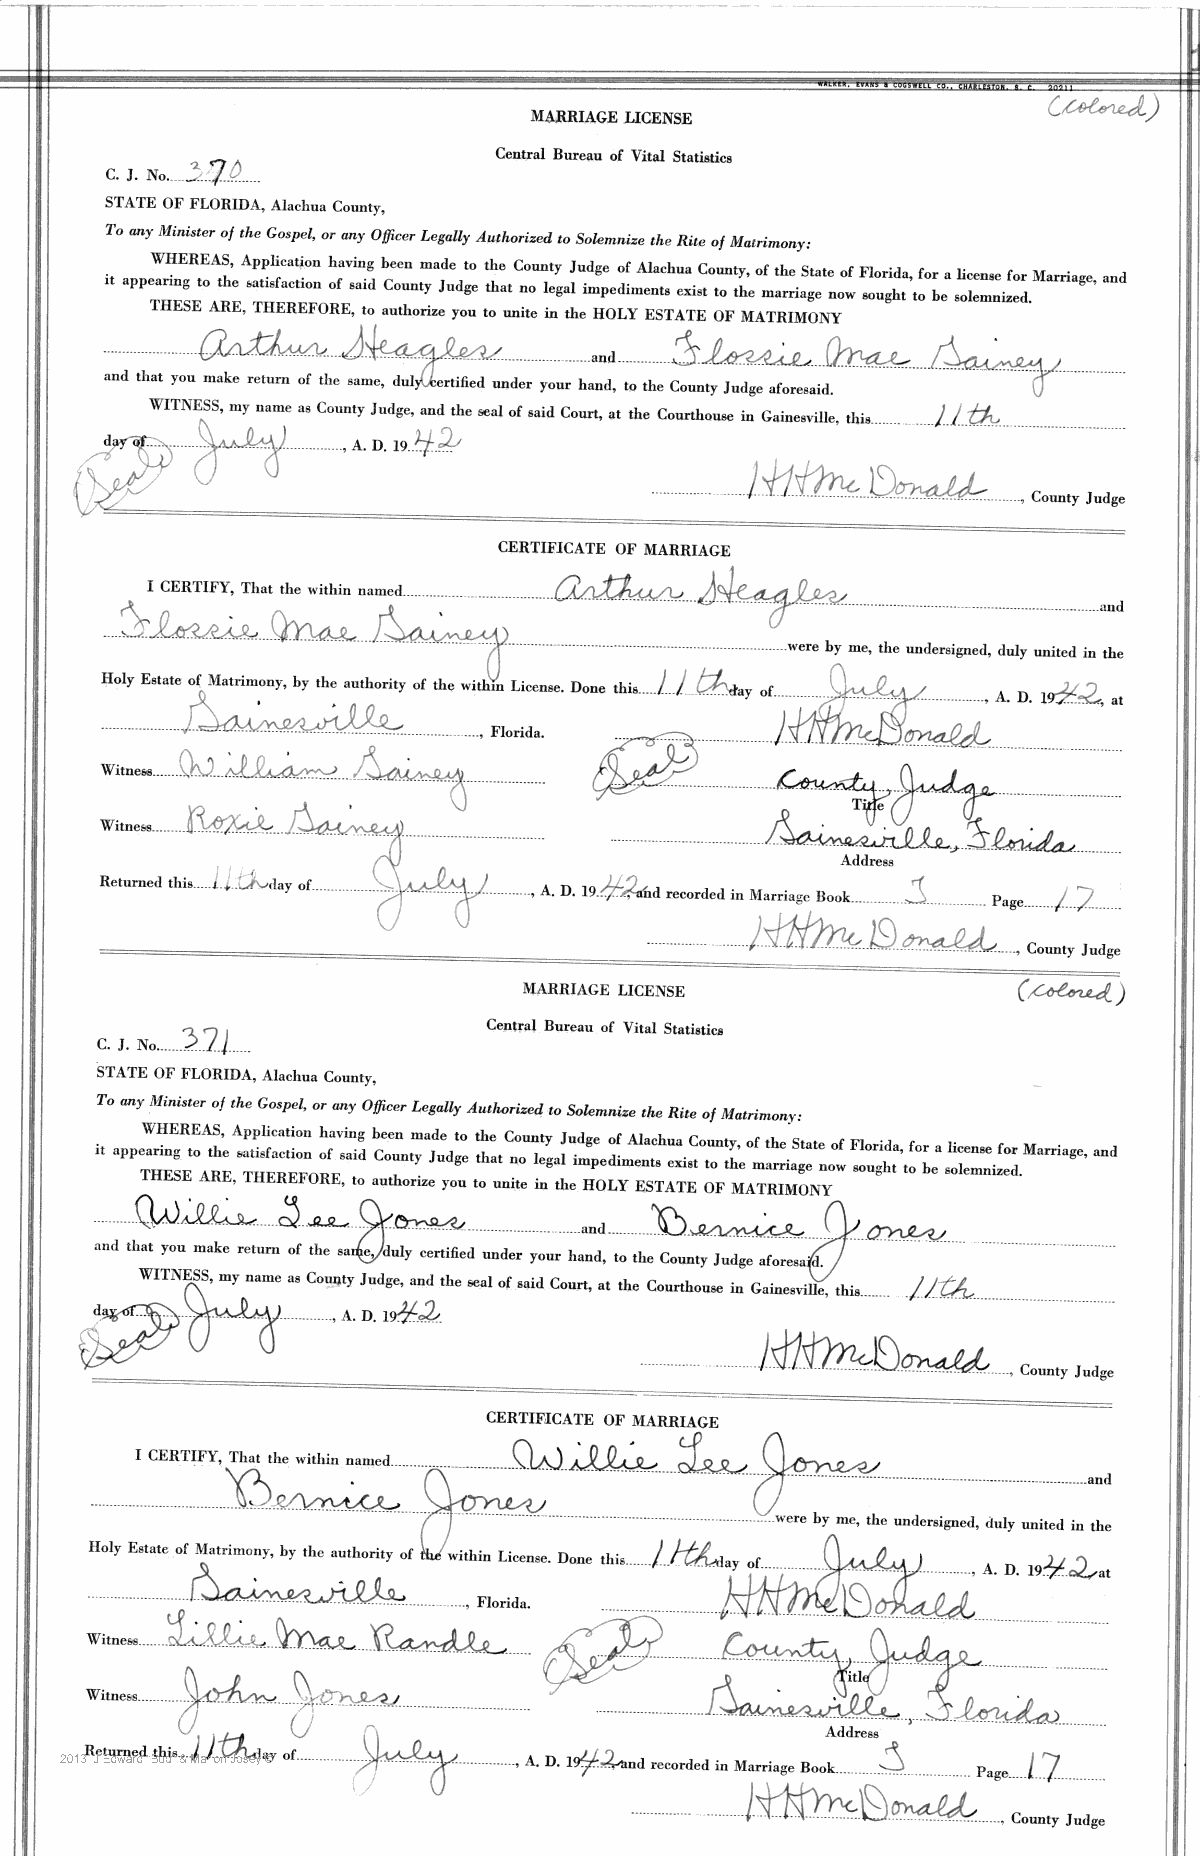 WALKER, EVANS & COGSWELL CO., CHARLESTON, S. C. 20211
(colored)
MARRIAGE LICENSE
Central Bureau of Vital Statistics
C. J. No. 370
STATE OF FLORIDA, Alachua County,
To any Minister of the Gospel, or any Officer Legally Authorized to Solemnize the Rite of Matrimony:
WHEREAS, Application having been made to the County Judge of Alachua County, of the State of Florida, for a license for Marriage, and
it appearing to the satisfaction of said County Judge that no legal impediments exist to the marriage now sought to be solemnized.
THESE ARE, THEREFORE, to authorize you to unite in the HOLY ESTATE OF MATRIMONY
Arthur Heagles and Flossie Mae Gainey
and that you make return of the same, duly certified under your hand, to the County Judge aforesaid.
WITNESS, my name as County Judge, and the seal of said Court, at the Courthouse in Gainesville, this 11th
day of July, A. D. 1942
(Seal)
HHMcDonald, County Judge
CERTIFICATE OF MARRIAGE
I CERTIFY, That the within named Arthur Heagles and
Flossie Mae Gainey were by me, the undersigned, duly united in the
Holy Estate of Matrimony, by the authority of the within License. Done this 11th day of July, A. D. 1942, at
Gainesville, Florida. HHMcDonald
Witness William Gainey (Seal) County Judge
Title
Witness Roxie Gainey Gainesville, Florida
Address
Returned this 11th day of July, A. D. 1942, and recorded in Marriage Book J Page 17
HHMcDonald, County Judge
(colored)
MARRIAGE LICENSE
Central Bureau of Vital Statistics
C. J. No. 371
STATE OF FLORIDA, Alachua County,
To any Minister of the Gospel, or any Officer Legally Authorized to Solemnize the Rite of Matrimony:
WHEREAS, Application having been made to the County Judge of Alachua County, of the State of Florida, for a license for Marriage, and
it appearing to the satisfaction of said County Judge that no legal impediments exist to the marriage now sought to be solemnized.
THESE ARE, THEREFORE, to authorize you to unite in the HOLY ESTATE OF MATRIMONY
Willie Lee Jones and Bernice Jones
and that you make return of the same, duly certified under your hand, to the County Judge aforesaid.
WITNESS, my name as County Judge, and the seal of said Court, at the Courthouse in Gainesville, this 11th
day of July, A. D. 1942
(Seal)
HHMcDonald, County Judge
CERTIFICATE OF MARRIAGE
I CERTIFY, That the within named Willie Lee Jones and
Bernice Jones were by me, the undersigned, duly united in the
Holy Estate of Matrimony, by the authority of the within License. Done this 11th day of July, A. D. 1942, at
Gainesville, Florida. HHMcDonald
Witness Lillie Mae Randle (Seal) County Judge
Title
Witness John Jones Gainesville, Florida
Address
Returned this 11th day of July, A. D. 1942, and recorded in Marriage Book J Page 17
2013 J Edward
HHMcDonald, County Judge